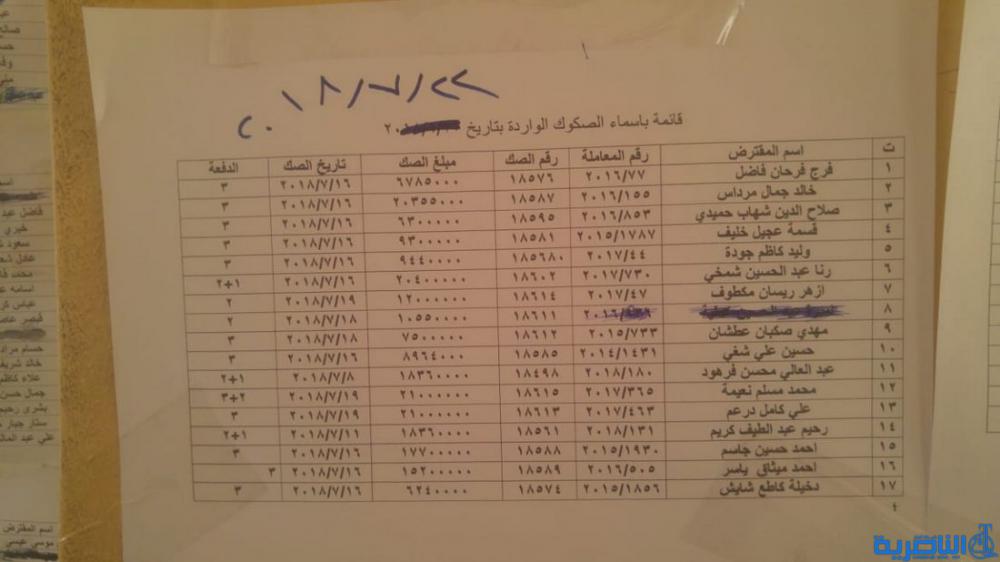 ٢٠١٨/٧/٢٢
قائمة باسماء الصكوك الواردة بتاريخ
ت اسم المقترض رقم المعاملة رقم الصك مبلغ الصك تاريخ الصك الدفعة
١ فرج فرحان فاضل ٢٠١٦/٧٧ ١٨٥٧٦ ٦٧٨٥٠٠٠ ٢٠١٨/٧/١٦ ٣
٢ خالد جمال مرداس ٢٠١٦/١٥٥ ١٨٥٨٧ ٢٠٣٥٥٠٠٠ ٢٠١٨/٧/١٦ ٣
٣ صلاح الدين شهاب حميدي ٢٠١٦/٨٥٣ ١٨٥٩٥ ٦٣٠٠٠٠٠ ٢٠١٨/٧/١٦ ٣
٤ قسمة عجيل خليف ٢٠١٥/١٧٨٧ ١٨٥٨١ ٩٣٠٠٠٠٠ ٢٠١٨/٧/١٦ ٣
٥ وليد كاظم جودة ٢٠١٧/٤٤ ١٨٥٦٨٠ ٩٤٤٠٠٠٠ ٢٠١٨/٧/١٦ ٣
٦ رنا عبد الحسين شمخي ٢٠١٧/٧٣٠ ١٨٦٠٢ ٢٠٤٠٠٠٠٠ ٢٠١٨/٧/١٦ ١+٢
٧ ازهر ريسان مكطوف ٢٠١٧/٤٧ ١٨٦١٤ ١٢٠٠٠٠٠٠ ٢٠١٨/٧/١٩ ٢
٨ ١٨٦١١ ١٠٥٥٠٠٠٠ ٢٠١٨/٧/١٨ ٢
٩ مهدي صكبان عطشان ٢٠١٥/٧٣٣ ١٨٦١٢ ٧٥٠٠٠٠٠ ٢٠١٨/٧/١٨ ٣
١٠ حسين علي شغي ٢٠١٤/١٤٣١ ١٨٥٨٥ ٨٩٦٤٠٠٠ ٢٠١٨/٧/١٦ ٣
١١ عبد العالي محسن فرهود ٢٠١٨/١٨٠ ١٨٤٩٨ ١٨٣٦٠٠٠٠ ٢٠١٨/٧/٨ ١+٢
١٢ محمد مسلم نعيمة ٢٠١٧/٣٦٥ ١٨٦١٥ ٢١٠٠٠٠٠٠ ٢٠١٨/٧/١٩ ٢+٣
١٣ علي كامل درعم ٢٠١٧/٤٦٣ ١٨٦١٣ ٢١٠٠٠٠٠٠ ٢٠١٨/٧/١٩ ٣
١٤ رحيم عبد الطيف كريم ٢٠١٨/١٣١ ١٨٥٦١ ١٨٣٦٠٠٠٠ ٢٠١٨/٧/١١ ١+٢
١٥ احمد حسين جاسم ٢٠١٥/١٩٣٠ ١٨٥٨٨ ١٧٧٠٠٠٠٠ ٢٠١٨/٧/١٦ ٣
١٦ احمد ميثاق ياسر ٢٠١٦/٥٠٥ ١٨٥٨٩ ١٥٢٠٠٠٠٠ ٢٠١٨/٧/١٦ ٣
١٧ دخيلة كاطع شايش ٢٠١٥/١٨٥٦ ١٨٥٧٤ ٦٢٤٠٠٠٠ ٢٠١٨/٧/١٦ ٣
الناصرية
فاضل عبد
خيري
سعود
محمد
اسامه
عباس
حسام
خالد شريف
علاء كاظم
جمال حسن
بشرى رحيم
ستار جبار
علي عبد
اسم المقترض
موسى عيسى